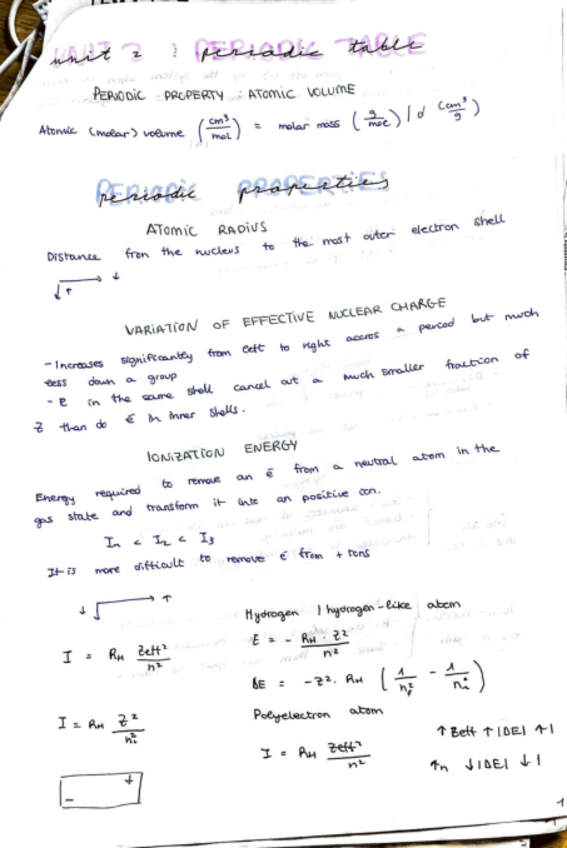 unit 2 : periodic table
PERIODIC PROPERTY : ATOMIC VOLUME
Atomic (molar) volume (cm³/mol) = molar mass (g/moe) / d (cm³/g)
periodic properties
ATOMIC RADIUS
Distance from the nucleus to the most outer electron shell
↓↑ → ↓
VARIATION OF EFFECTIVE NUCLEAR CHARGE
- Increases significantly from left to right accros a period but much
less down a group
- e in the same shell cancel out a much smaller fraction of
Z than do ē in inner shells.
IONIZATION ENERGY
Energy required to remove an ē from a neutral atom in the
gas state and transform it into an positive ion.
I₁ < I₂ < I₃
It is more difficult to remove ē from + ions
↓ → ↑
Hydrogen / hydrogen-like atom
E = - RH · Z² / n²
I = RH Zeff² / n²
ΔE = -Z² · RH (1/nf² - 1/ni²)
Polyelectron atom
I = RH Z² / ni²
I = RH Zeff² / n²
↑ Zeff ↑ |ΔE| ↑ I
↑n ↓ |ΔE| ↓ I
+
-
1